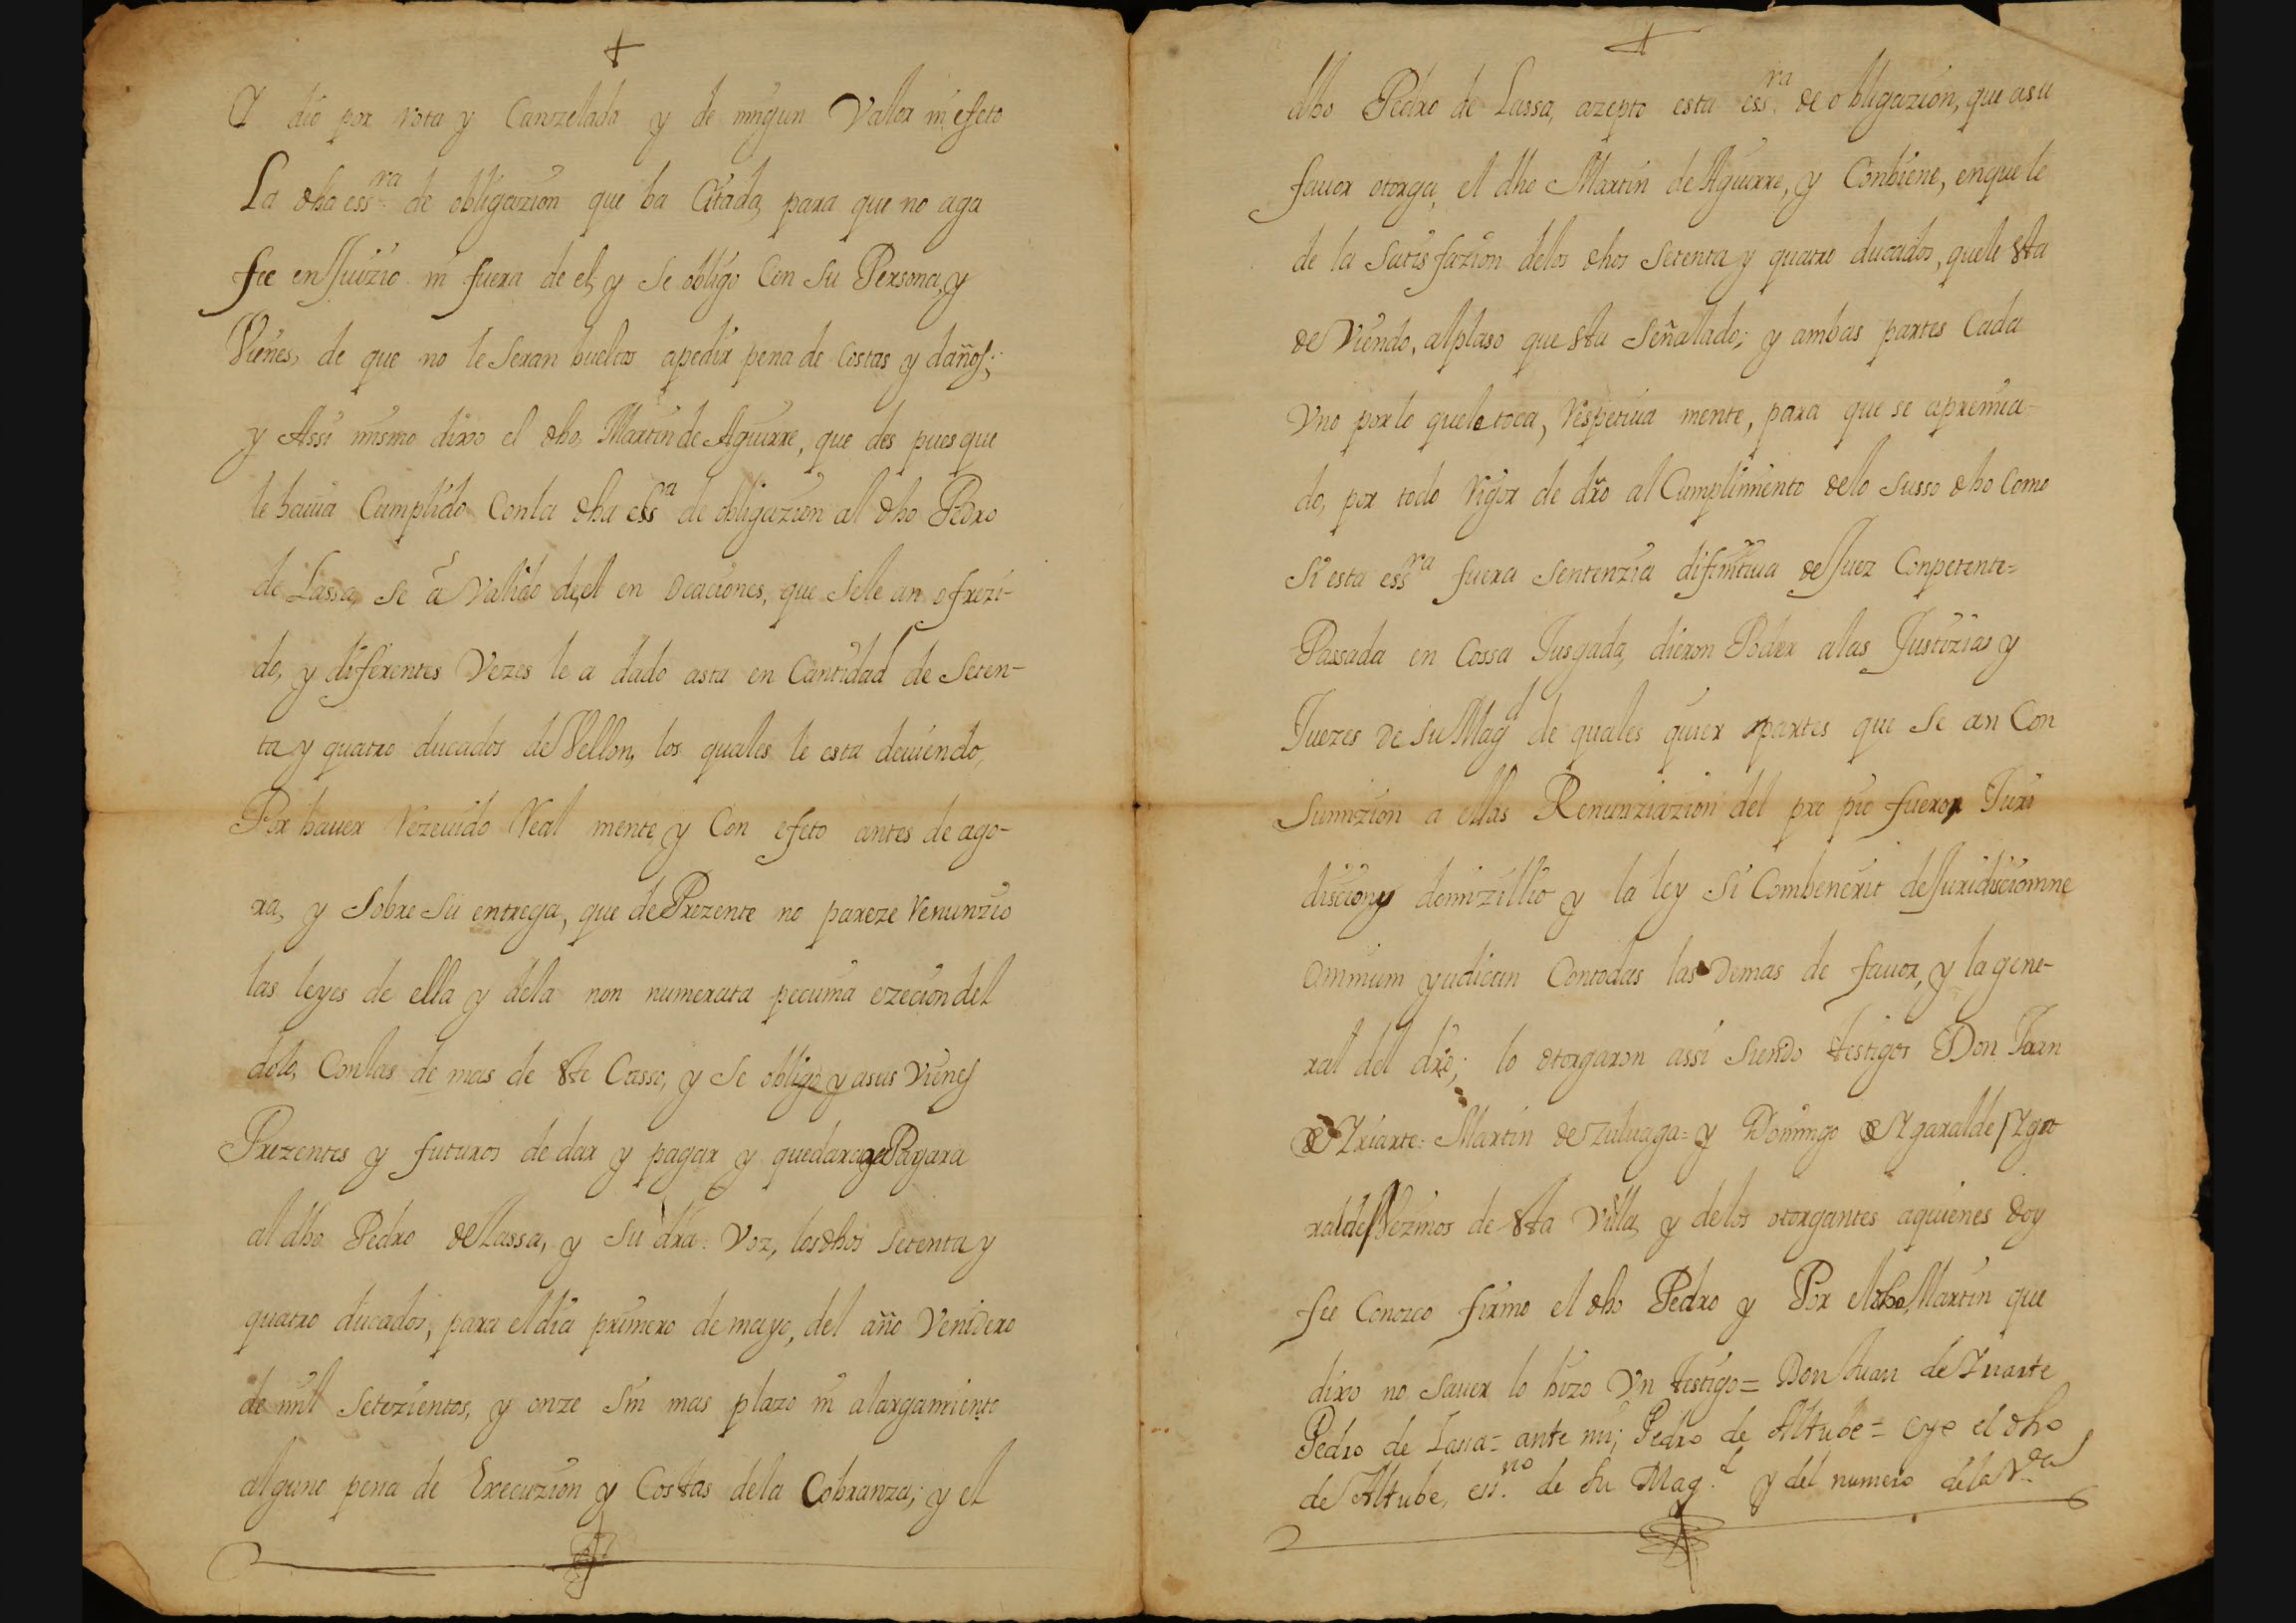 Y dio por rota y Canzelada y de ningun Valor ni efeto
La dha essra de obligazion que ba Citada, para que no aga
fee en Juizio ni fuera de el, y se obligo Con su Persona, y
Vienes, de que no le seran bueltos apedir pena de Costas y daños;
y Assi mismo dixo el dho Martin de Aguirre, que des pues que
le hauia Cumplido Conla dha essra de obligazion al dho Pedro
de Lassa, se á Valido de,el en ocaciones, que sele an ofrezi-
do, y diferentes Vezes le a dado asta en Cantidad de seten-
ta y quatro ducados de Vellon, los quales le esta deuiendo,
Por hauer Rezeuido Real mente, y Con efeto antes de ago-
ra, y sobre su entrega, que de Prezente no pareze Renunzio
las leyes de ella y dela non numerata pecunia ezecion del
dolo, Conlas de mas de este Casso, y se obligo y asus Vienes
Prezentes y futuros de dar y pagar y quedara y Pagara
al dho Pedro de Lassa, y su dra. Voz, los dhos setenta y
quatro ducados, para el dia primero de mayo, del año Venidero
de mil setezientos, y onze sin mas plazo ni alargamiento
alguno pena de Execuzion y Costas dela Cobranza; y el
dho Pedro de Lassa, azepto esta essra de obligazion, que asu
fauor otorga, el dho Martin de Aguirre, y Conbiene, enque le
de la satisfazion delos dhos setenta y quatro ducados, quele esta
deViendo, alplaso que esta señalado; y ambas partes Cada
Vno porlo quele toca, Respetiua mente, para que se apremia-
do, por todo Rigor de dro al Cumplimiento delo susso dho Como
Si esta essra fuera sentenzia difinitiua de Juez Conpetente=
Passada en Cossa Jusgada, dieron Poder alas Justizias y
Juezes de su Magd de quales quier partes que se an Con
Sumizion a ellas Renunziazion del pro pio fuero, Juri
discion y domizillio y la ley Si Combenerit de Juridiscionne
Omnium yudicun Contodas las Demas de fauor, y la gene-
ral del dro; lo otorgaron assi siendo testigos Don Juan
de Yriarte: Martin de Zuluaga= y Domingo de Ygaralde / Yga
ralde / Vezinos de esta Villa, y delos otorgantes aquienes doy
fee Conozco firmo el dho Pedro y Por el dho Martin que
dixo no sauer lo hizo Vn testigo= Don Juan de Yriarte
Pedro de Lassa= ante mi; Pedro de Altube= eyo el dho
de Altube, essno. de su Magd. y del numero dela Va